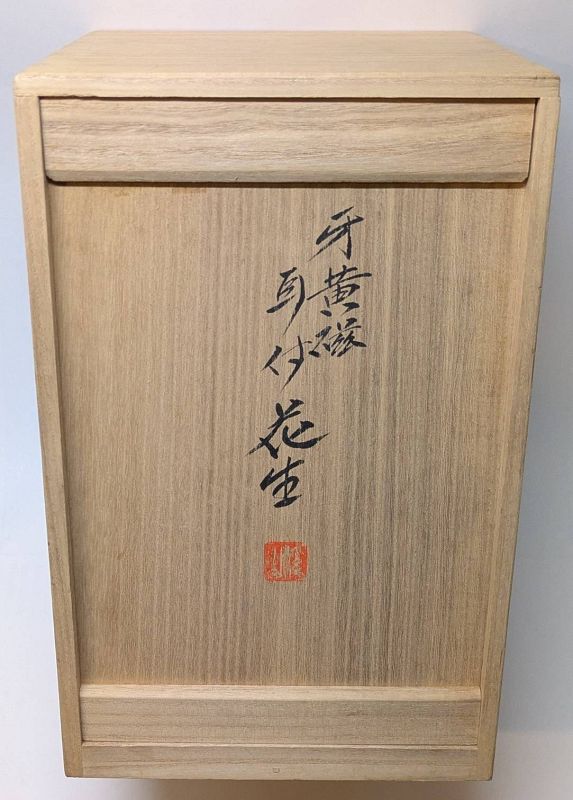 牙黄磁
耳付花生